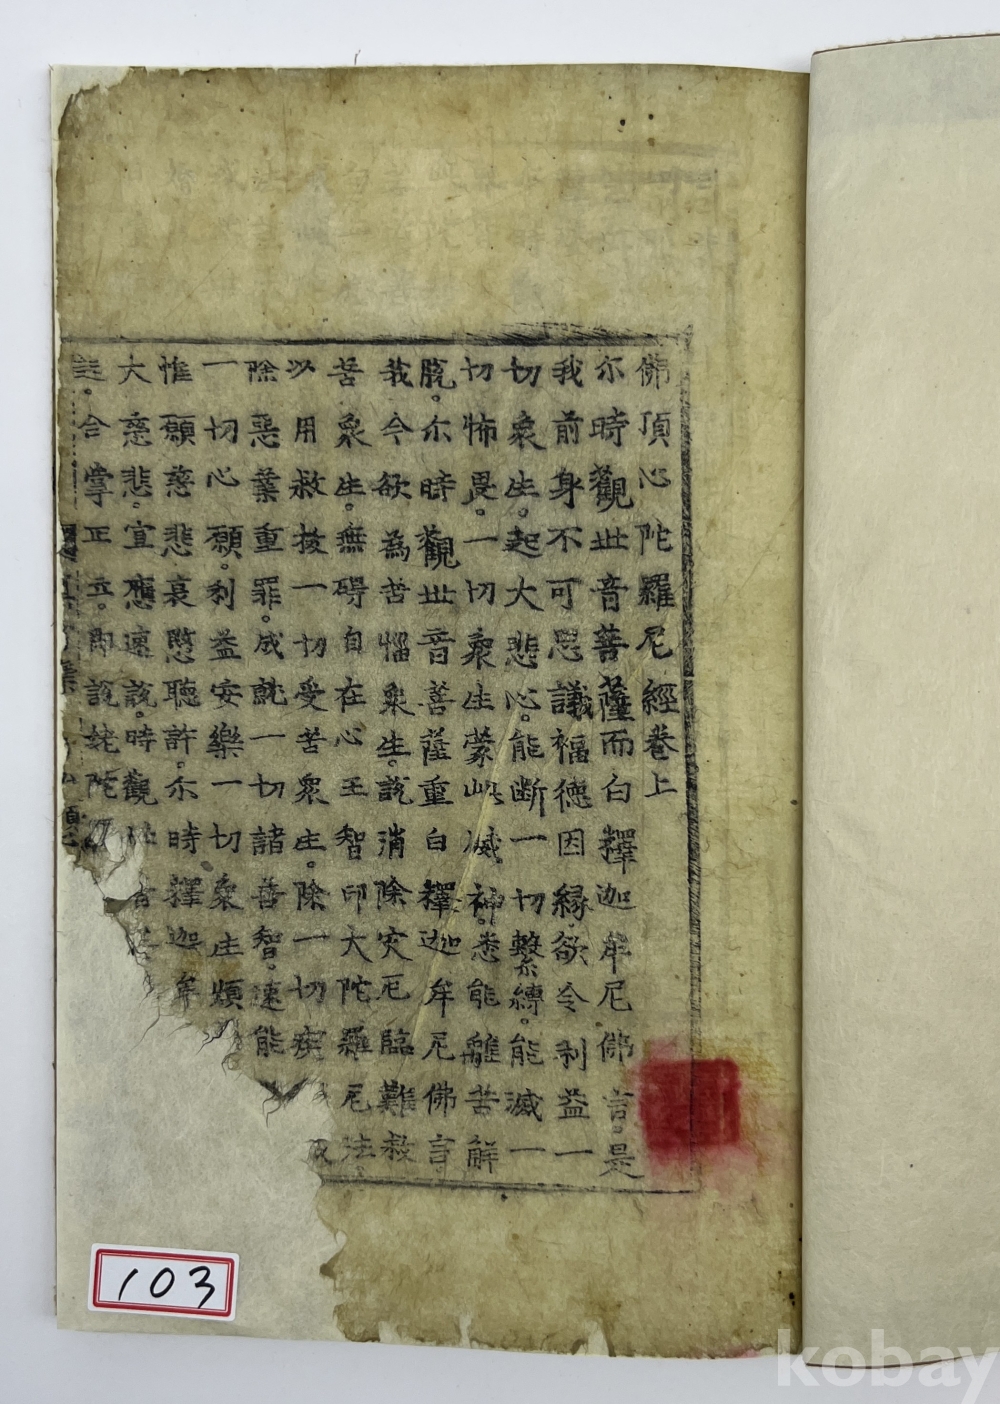 佛頂心陀羅尼經卷上
尒時觀世音菩薩而白釋迦牟尼佛言。是
我前身不可思議福德因縁。欲令利益一
切衆生。起大悲心。能斷一切繫縛。能滅一
切怖畏。一切衆生蒙此威神。悉能離苦解
脫。尒時觀世音菩薩重白釋迦牟尼佛言
我今欲為苦惱衆生。說消除灾厄臨難救
苦衆生。無碍自在心王智印大陀羅尼法。
以用救拔一切受苦衆生。除一切疾
除惡業重罪。成就一切諸善智。速能
一切心願。利益安樂一切衆生煩
惟願慈悲哀愍聽許。尒時釋迦牟
大慈悲。宜應速說。時觀
合掌正立。即說姥陀
103
kobay